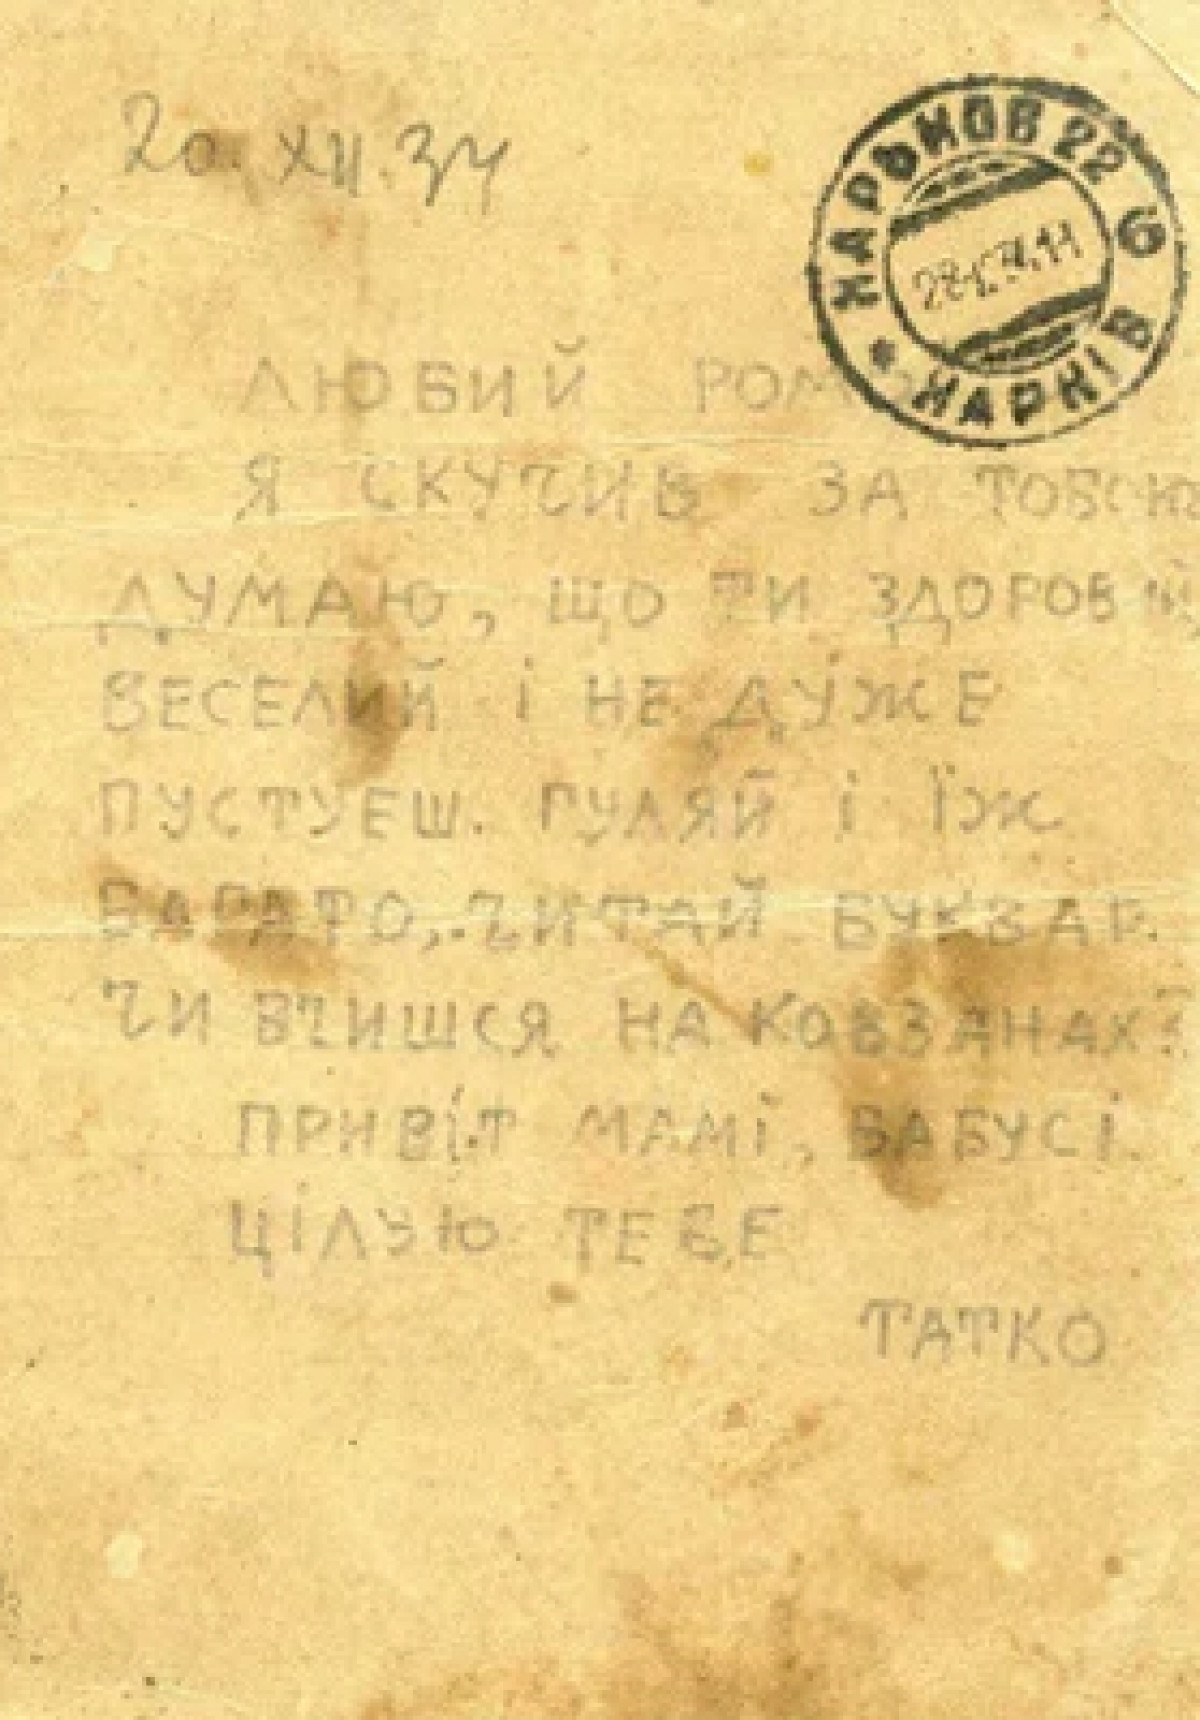 20. XII. 34
ХАРЬКОВ 22 6
ХАРКІВ
ЛЮБИЙ
Я СКУЧИВ ЗА ТОБОЮ
ДУМАЮ, ЩО ТИ ЗДОРОВИЙ
ВЕСЕЛИЙ І НЕ ДУЖЕ
ПУСТУЕШ. ГУЛЯЙ І ЇЖ
БАГАТО, ЧИТАЙ БУКВАР.
ЧИ ВЧИШСЯ НА КОВЗАНАХ?
ПРИВІТ МАМІ, БАБУСІ.
ЦІЛУЮ ТЕБЕ
ТАТКО